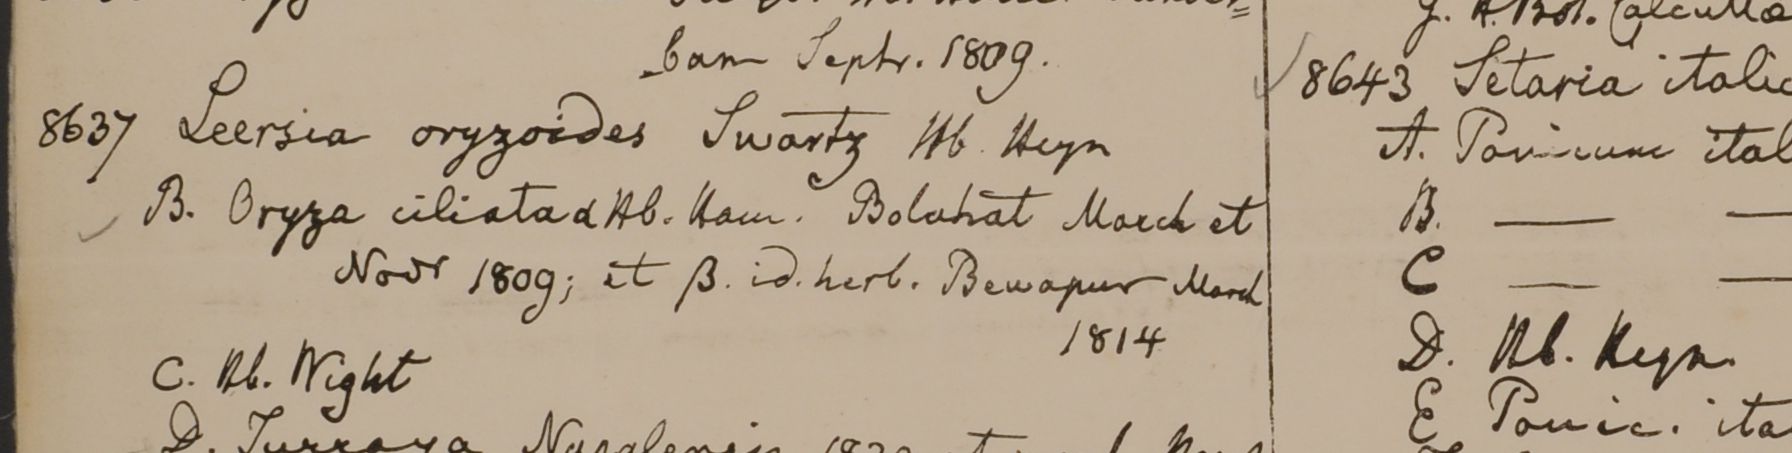 bam Septr. 1809.
8637 Leersia oryzoides Swartz Hb. Heyn
B. Oryza ciliata α Hb. Ham. Boluhat March et
Novr 1809; et β. id. herb. Bewapur March
1814
C. Hb. Wight
D. Napalensis 1820
G. H. Bot. Calcutta
8643 Setaria italic
A. Panicum ital
B. — —
C — —
D. Hb. Heyn.
E Panic. ita